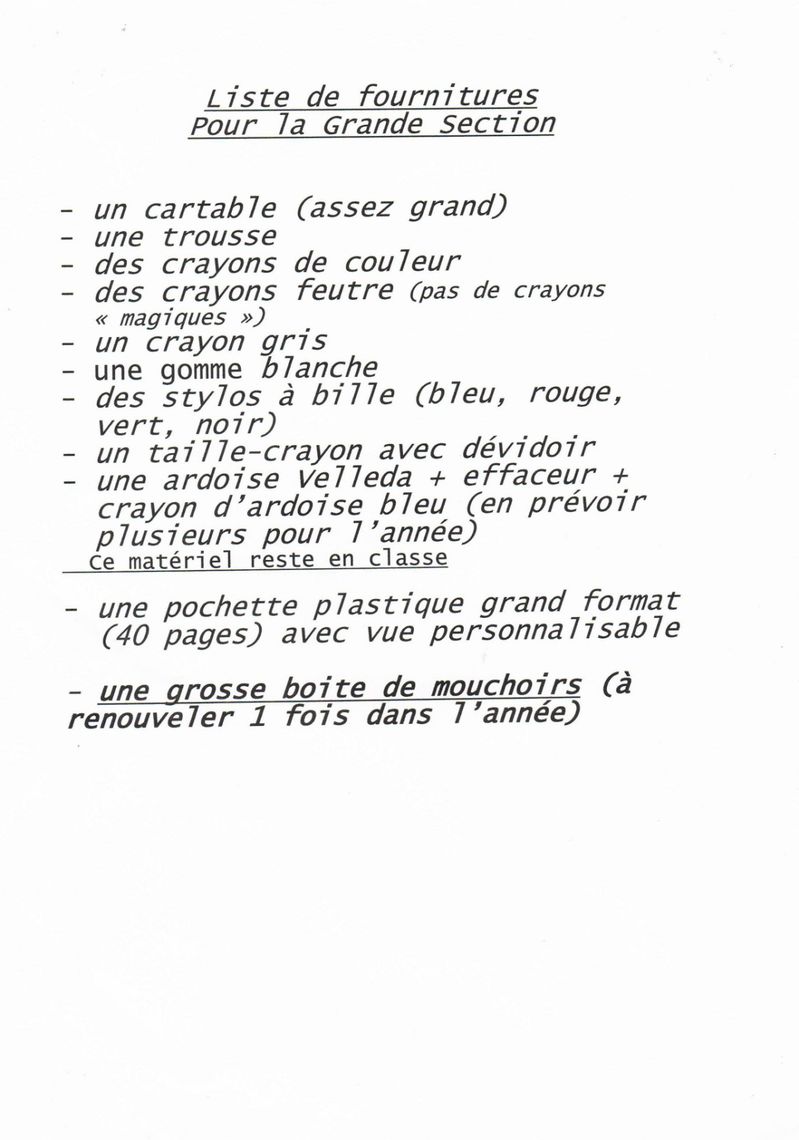 Liste de fournitures
Pour la Grande Section
- un cartable (assez grand)
- une trousse
- des crayons de couleur
- des crayons feutre (pas de crayons
« magiques »)
- un crayon gris
- une gomme blanche
- des stylos à bille (bleu, rouge,
vert, noir)
- un taille-crayon avec dévidoir
- une ardoise Velleda + effaceur +
crayon d'ardoise bleu (en prévoir
plusieurs pour l'année)
Ce matériel reste en classe
- une pochette plastique grand format
(40 pages) avec vue personnalisable
- une grosse boite de mouchoirs (à
renouveler 1 fois dans l'année)